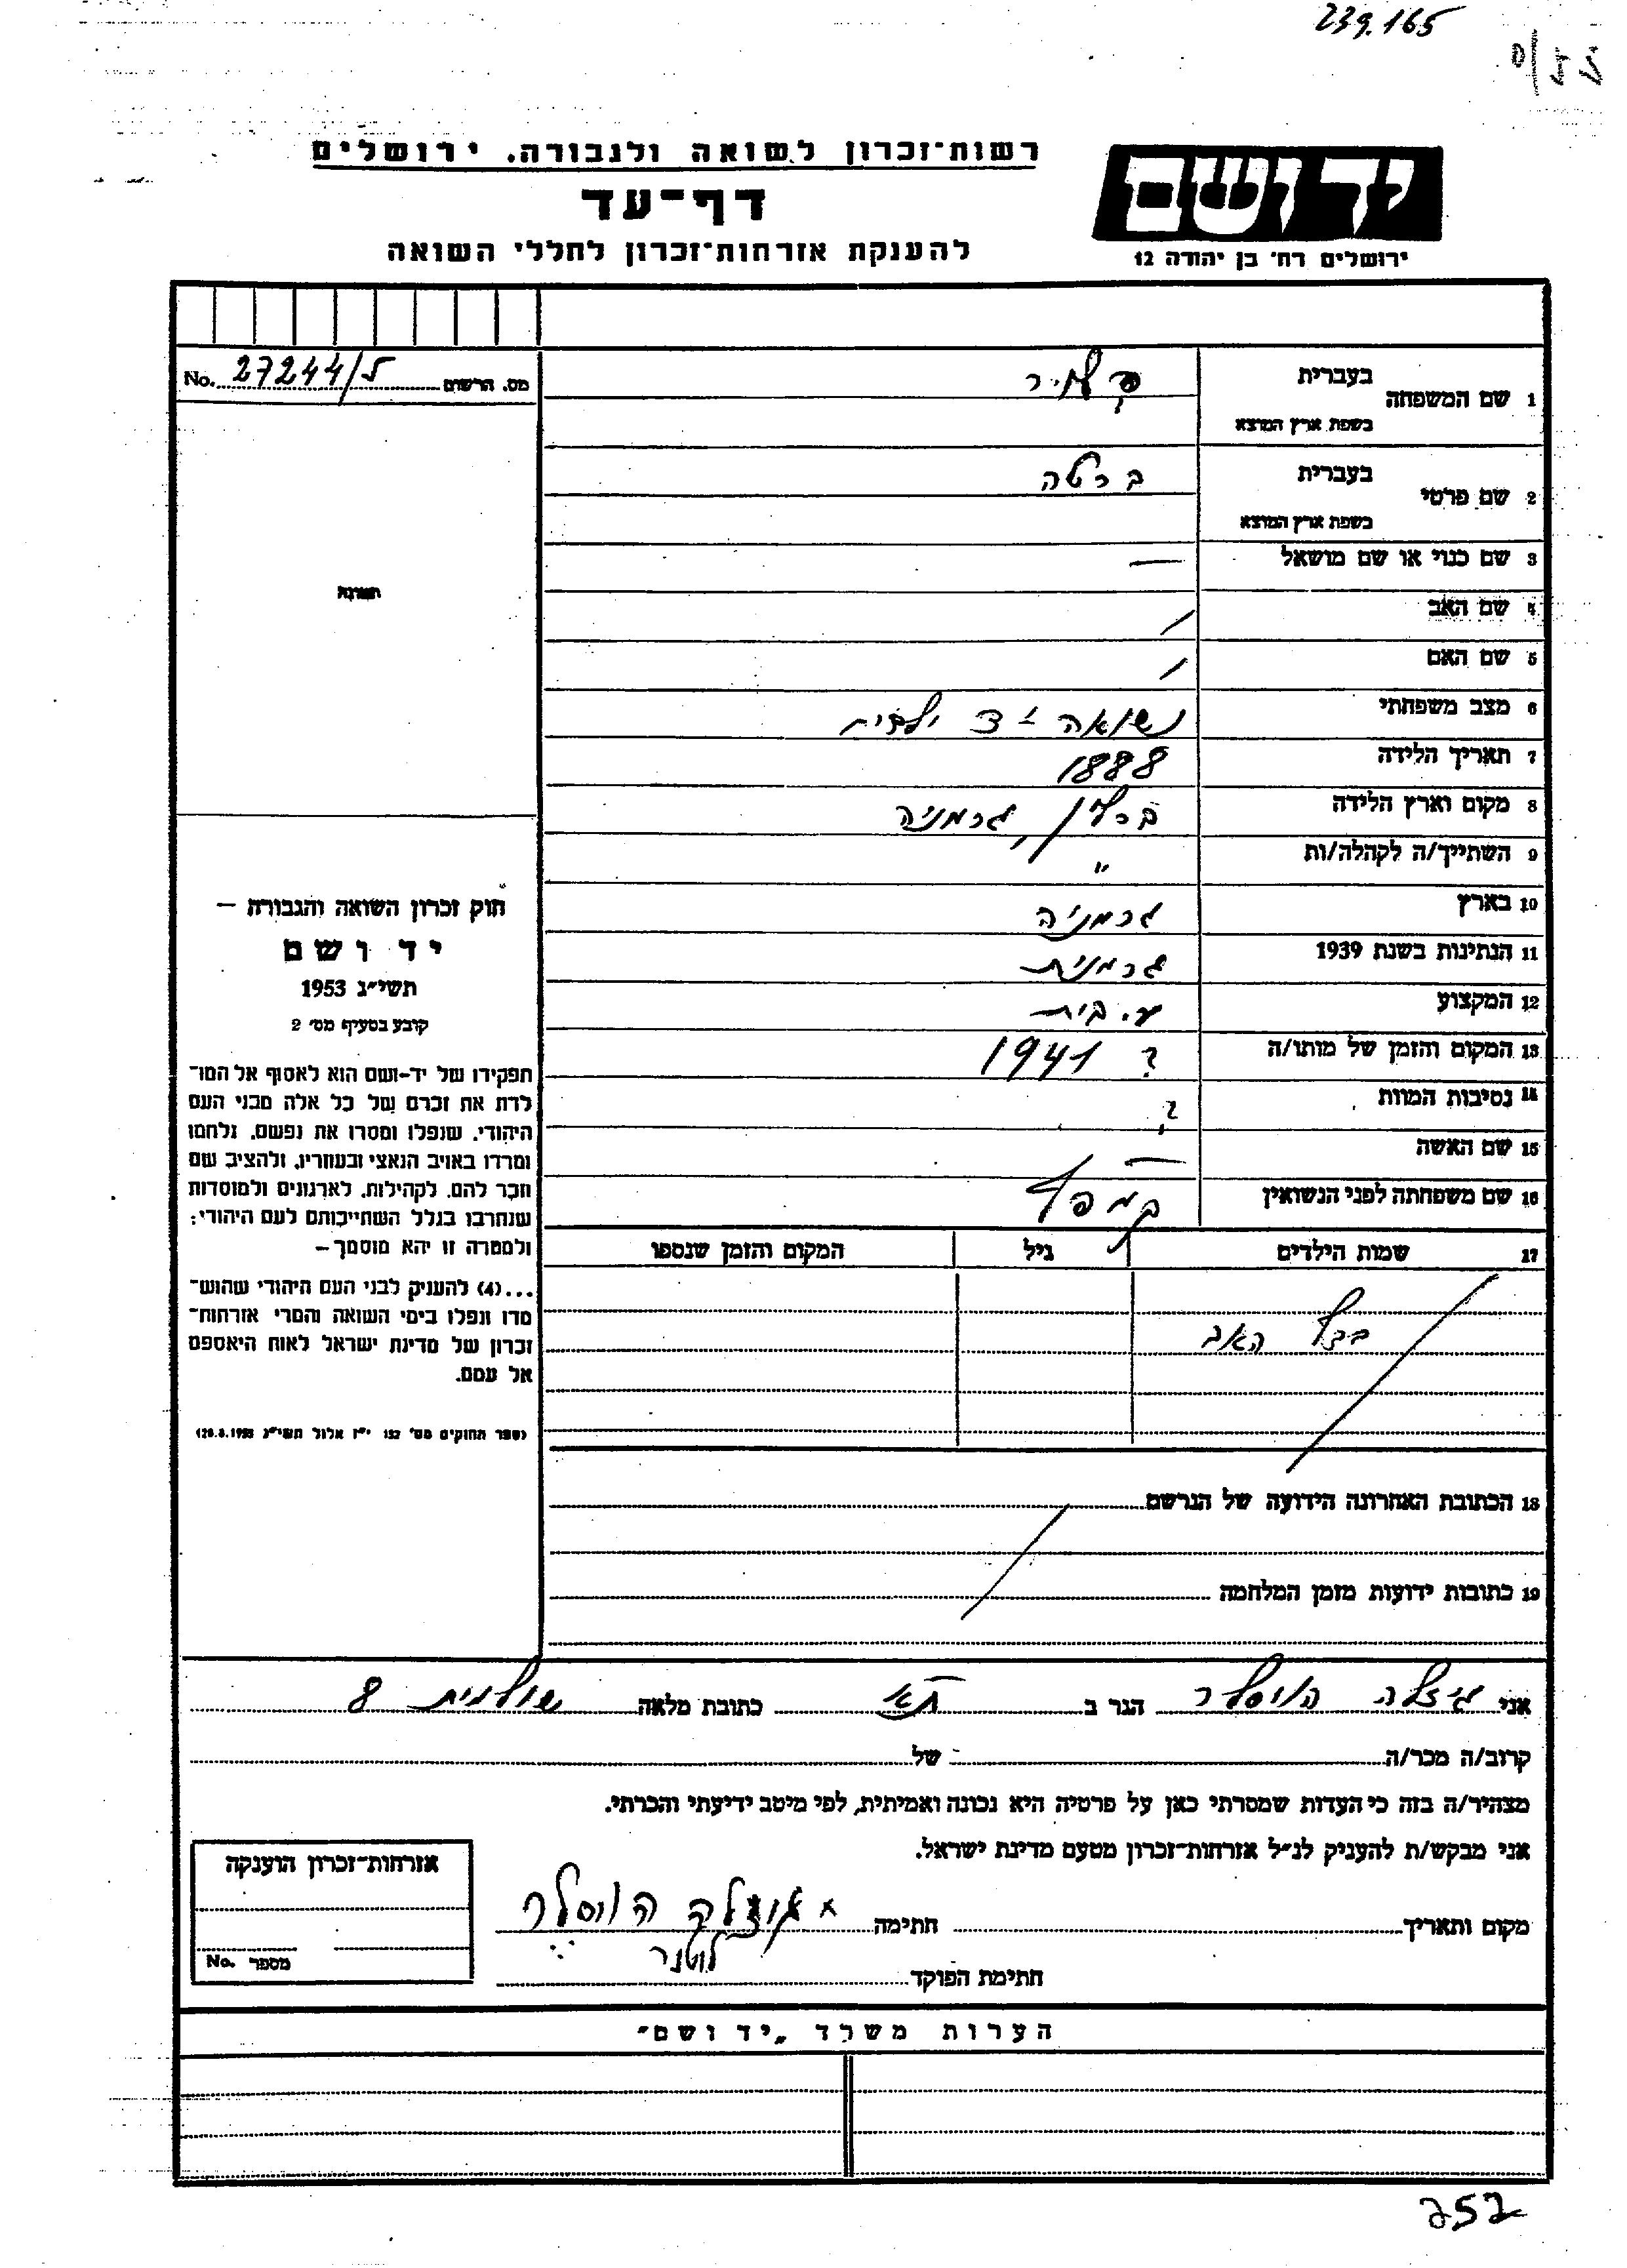 239.165
רשות־זכרון לשואה ולגבורה. ירושלים
יד ושם
דף־עד
ירושלים רח׳ בן יהודה 12
להענקת אזרחות־זכרון לחללי השואה
מס. הרשום 27244/5 No.
1 שם המשפחה בעברית
בשפת ארץ המוצא
2 שם פרטי בעברית ברטה
בשפת ארץ המוצא
3 שם כנוי או שם מושאל —
4 שם האב /
5 שם האם /
6 מצב משפחתי נשואה
7 תאריך הלידה 1888
8 מקום וארץ הלידה ברלין, גרמניה
9 השתייך/ה לקהלה/ות "
10 בארץ גרמניה
11 הנתינות בשנת 1939 גרמנית
12 המקצוע ע. בית
13 המקום והזמן של מותו/ה ? 1941
14 נסיבות המוות ?
15 שם האשה —
16 שם משפחתה לפני הנשואין
17 שמות הילדים גיל המקום והזמן שנספו
בדף האב
18 הכתובת האחרונה הידועה של הנרשם
19 כתובות ידועות מזמן המלחמה
תמונה
חוק זכרון השואה והגבורה —
יד ושם
תשי״ג 1953
קובע בסעיף מס׳ 2
תפקידו של יד-ושם הוא לאסוף אל המו־
לדת את זכרם של כל אלה מבני העם
היהודי, שנפלו ומסרו את נפשם, נלחמו
ומרדו באויב הנאצי ובעוזריו, ולהציב שם
וזכר להם, לקהילות, לארגונים ולמוסדות
שנחרבו בגלל השתייכותם לעם היהודי;
ולמטרה זו יהא מוסמך—
...(4) להעניק לבני העם היהודי שהוש־
מדו ונפלו בימי השואה והמרי אזרחות־
זכרון של מדינת ישראל לאות היאספם
אל עמם.
(ספר החוקים מס׳ 132 י״ז אלול תשי״ג 28.8.1953)
אני גיזלה הויסלר הגר ב ת״א כתובת מלאה שולמית 8
קרוב/ה מכר/ה של
מצהיר/ה בזה כי העדות שמסרתי כאן על פרטיה היא נכונה ואמיתית, לפי מיטב ידיעתי והכרתי.
אני מבקש/ת להעניק לנ״ל אזרחות־זכרון מטעם מדינת ישראל.
מקום ותאריך חתימה הויסלר
חתימת הפוקד
אזרחות־זכרון הוענקה
מספר No.
הערות משרד „יד ושם״
252